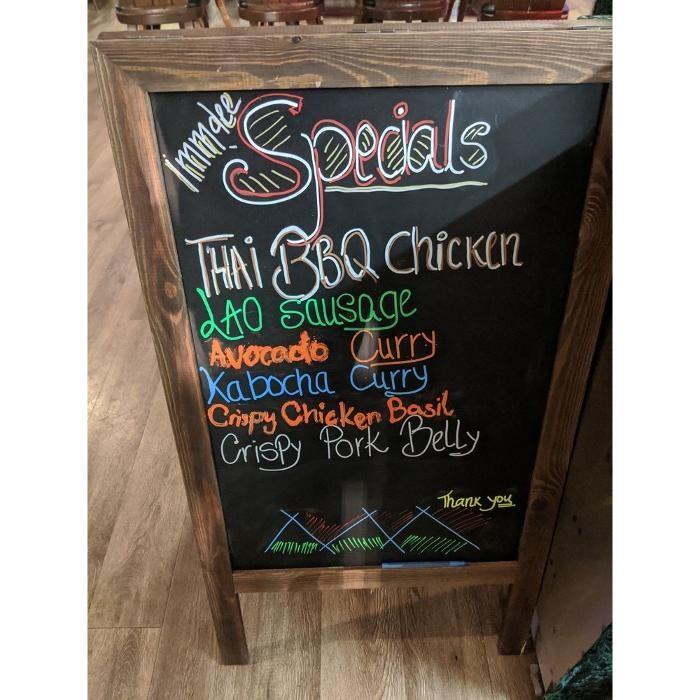 Immdee
Specials
THAi BBQ Chicken
LAO Sausage
Avocado Curry
Kabocha Curry
Crispy Chicken Basil
Crispy Pork Belly
Thank you